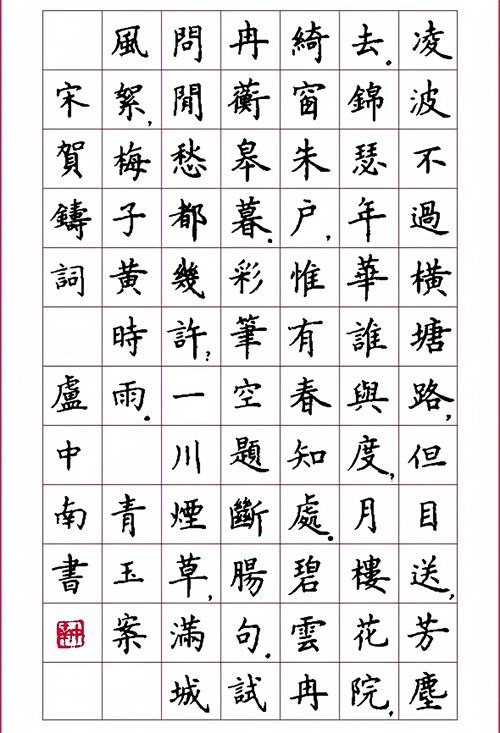 凌波不過橫塘路,但目送,芳塵
去。錦瑟年華誰與度,月樓花院,
綺窗朱戶,惟有春知處。碧雲冉
冉蘅皋暮。彩筆空題斷腸句。試
問閒愁都幾許?一川煙草,滿城
風絮,梅子黃時雨。 青玉案
宋賀鑄詞 盧中南書